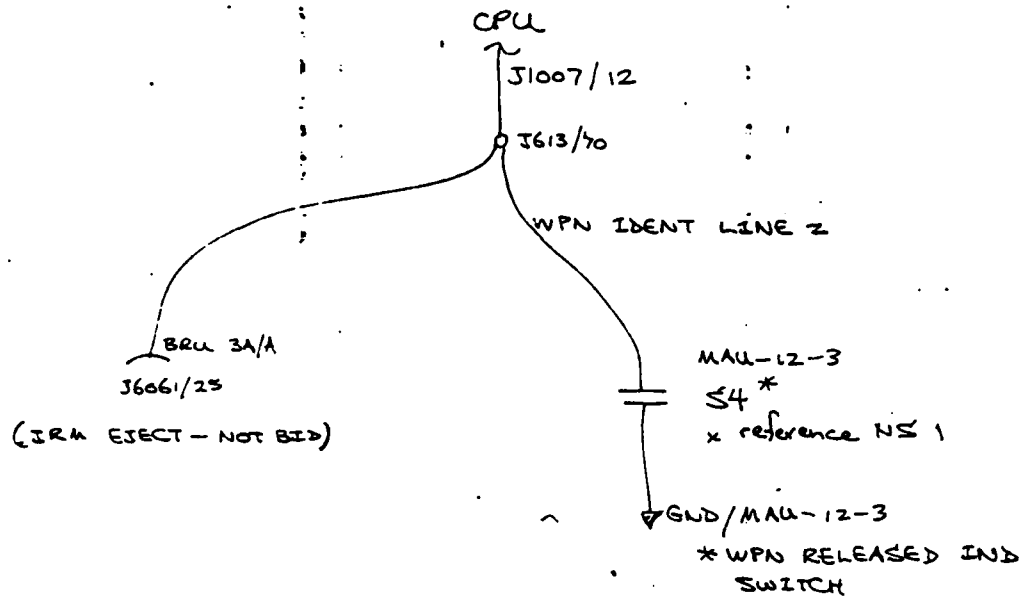 CPU
J1007/12
J613/70
WPN IDENT LINE 2
BRU 3A/A
J6061/25
(IRM EJECT - NOT BID)
MAU-12-3
S4 *
* reference NS 1
GND/MAU-12-3
* WPN RELEASED IND
SWITCH